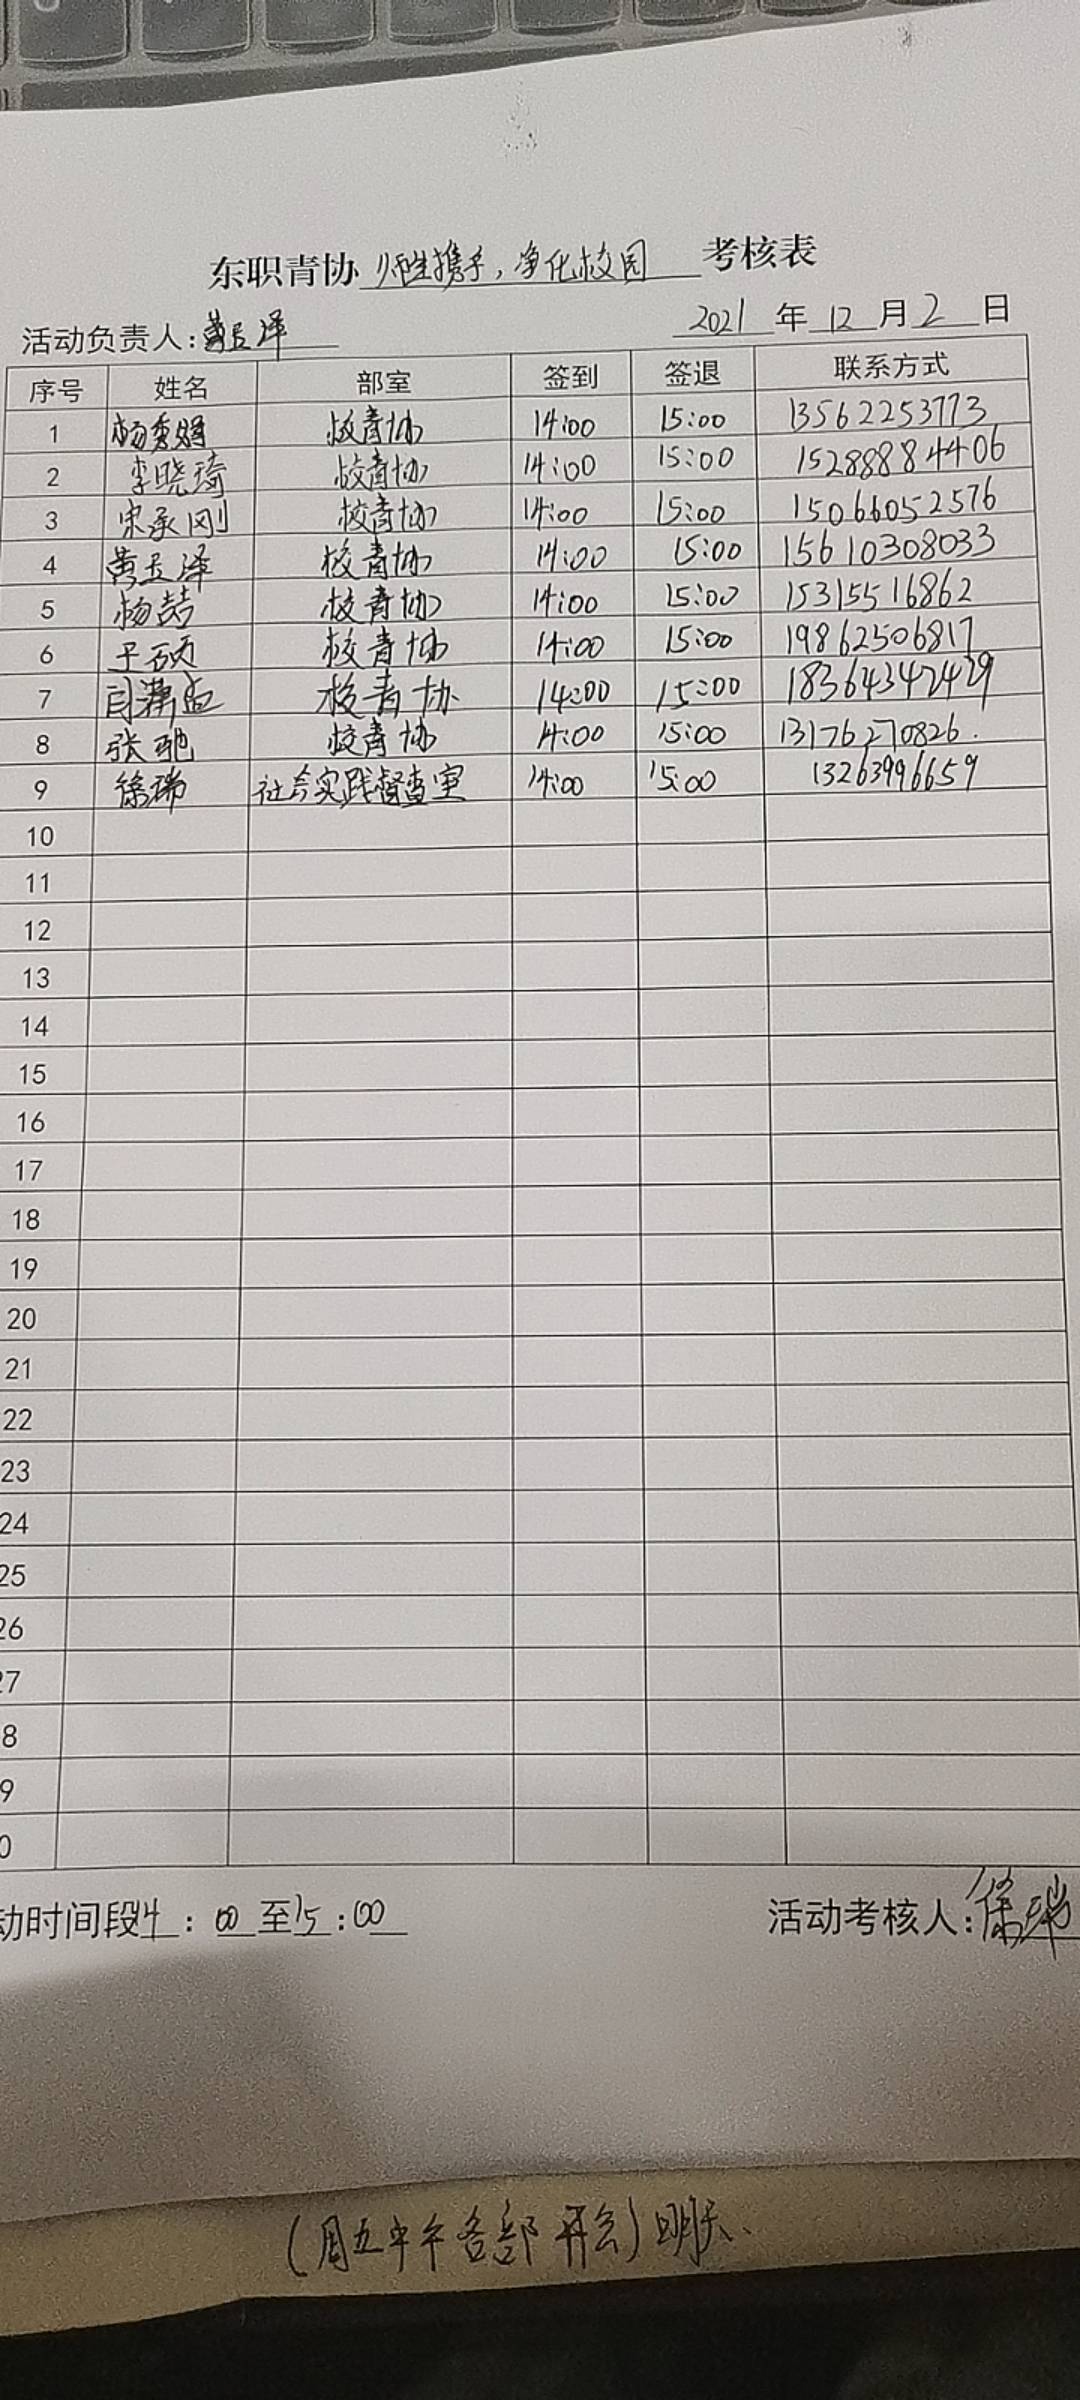 东职青协 师生携手，净化校园 考核表
活动负责人：黄玉泽 2021 年 12 月 2 日
序号 姓名 部室 签到 签退 联系方式
1 杨秀娟 校青协 14:00 15:00 13562253773
2 李晓琦 校青协 14:00 15:00 15288884406
3 宋承刚 校青协 14:00 15:00 15066052576
4 黄玉泽 校青协 14:00 15:00 15610308033
5 杨喆 校青协 14:00 15:00 15315516862
6 于硕 校青协 14:00 15:00 19862506817
7 校青协 14:00 15:00 18364342429
8 张驰 校青协 14:00 15:00 13176270826.
9 徐瑞 社会实践督查室 14:00 15:00 13263996659
10
11
12
13
14
15
16
17
18
19
20
21
22
23
24
25
26
27
8
9
0
动时间段14:00至15:00 活动考核人：徐瑞
(周五中午各部开会)明天、